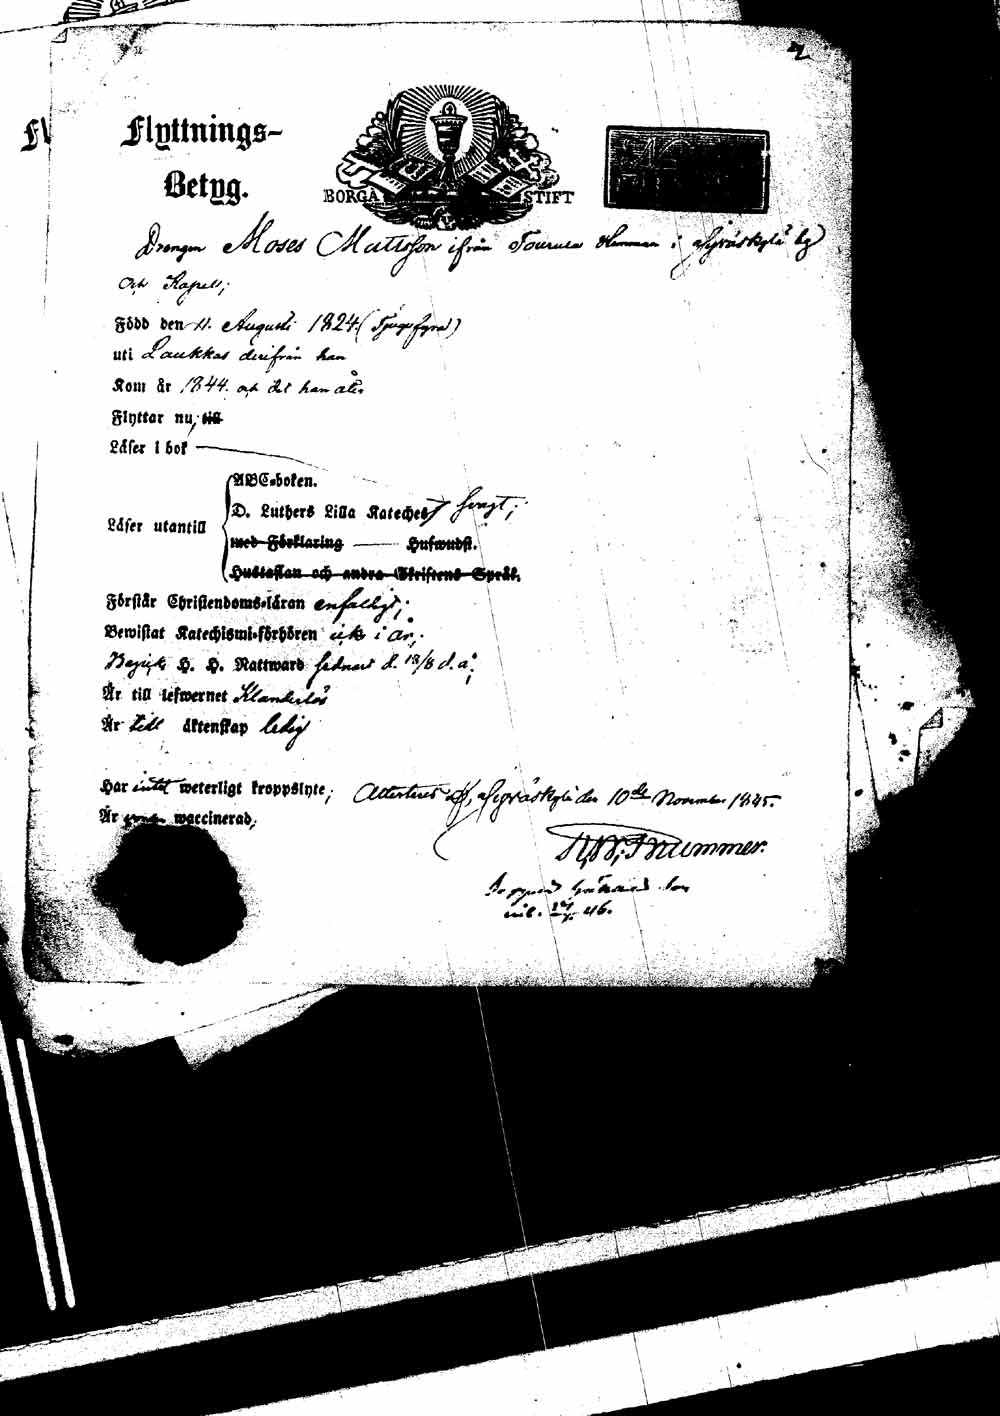 2
Flyttnings-
Betyg.
BORGÅ STIFT
Drengen Moses Mattsson ifrån Tourula Hemman i Jyväskylä by
och Kapell;
Född den 11. Augusti 1824 (Tjugofyra)
uti Laukkas derifrån han
Kom år 1844. och dit han åter
Flyttar nu, till
Läser i bok
ABC-boken.
D. Luthers Lilla Kateches svagt;
Läser utantill
med Förklaring Hufwudst.
Hustaflan och andra Skriftens Språk.
Förstår Christendoms-läran enfaldigt;
Bewistat Katechismi-förhören ick i år;
Begick H. H. Nattward sednast d. 18/8 d. å;
Är till lefwernet Klanderlös
Är till äktenskap ledig
Har intet weterligt kroppslyte;
Attesteras af, Jyväskylä den 10de November 1845.
Är waccinerad;